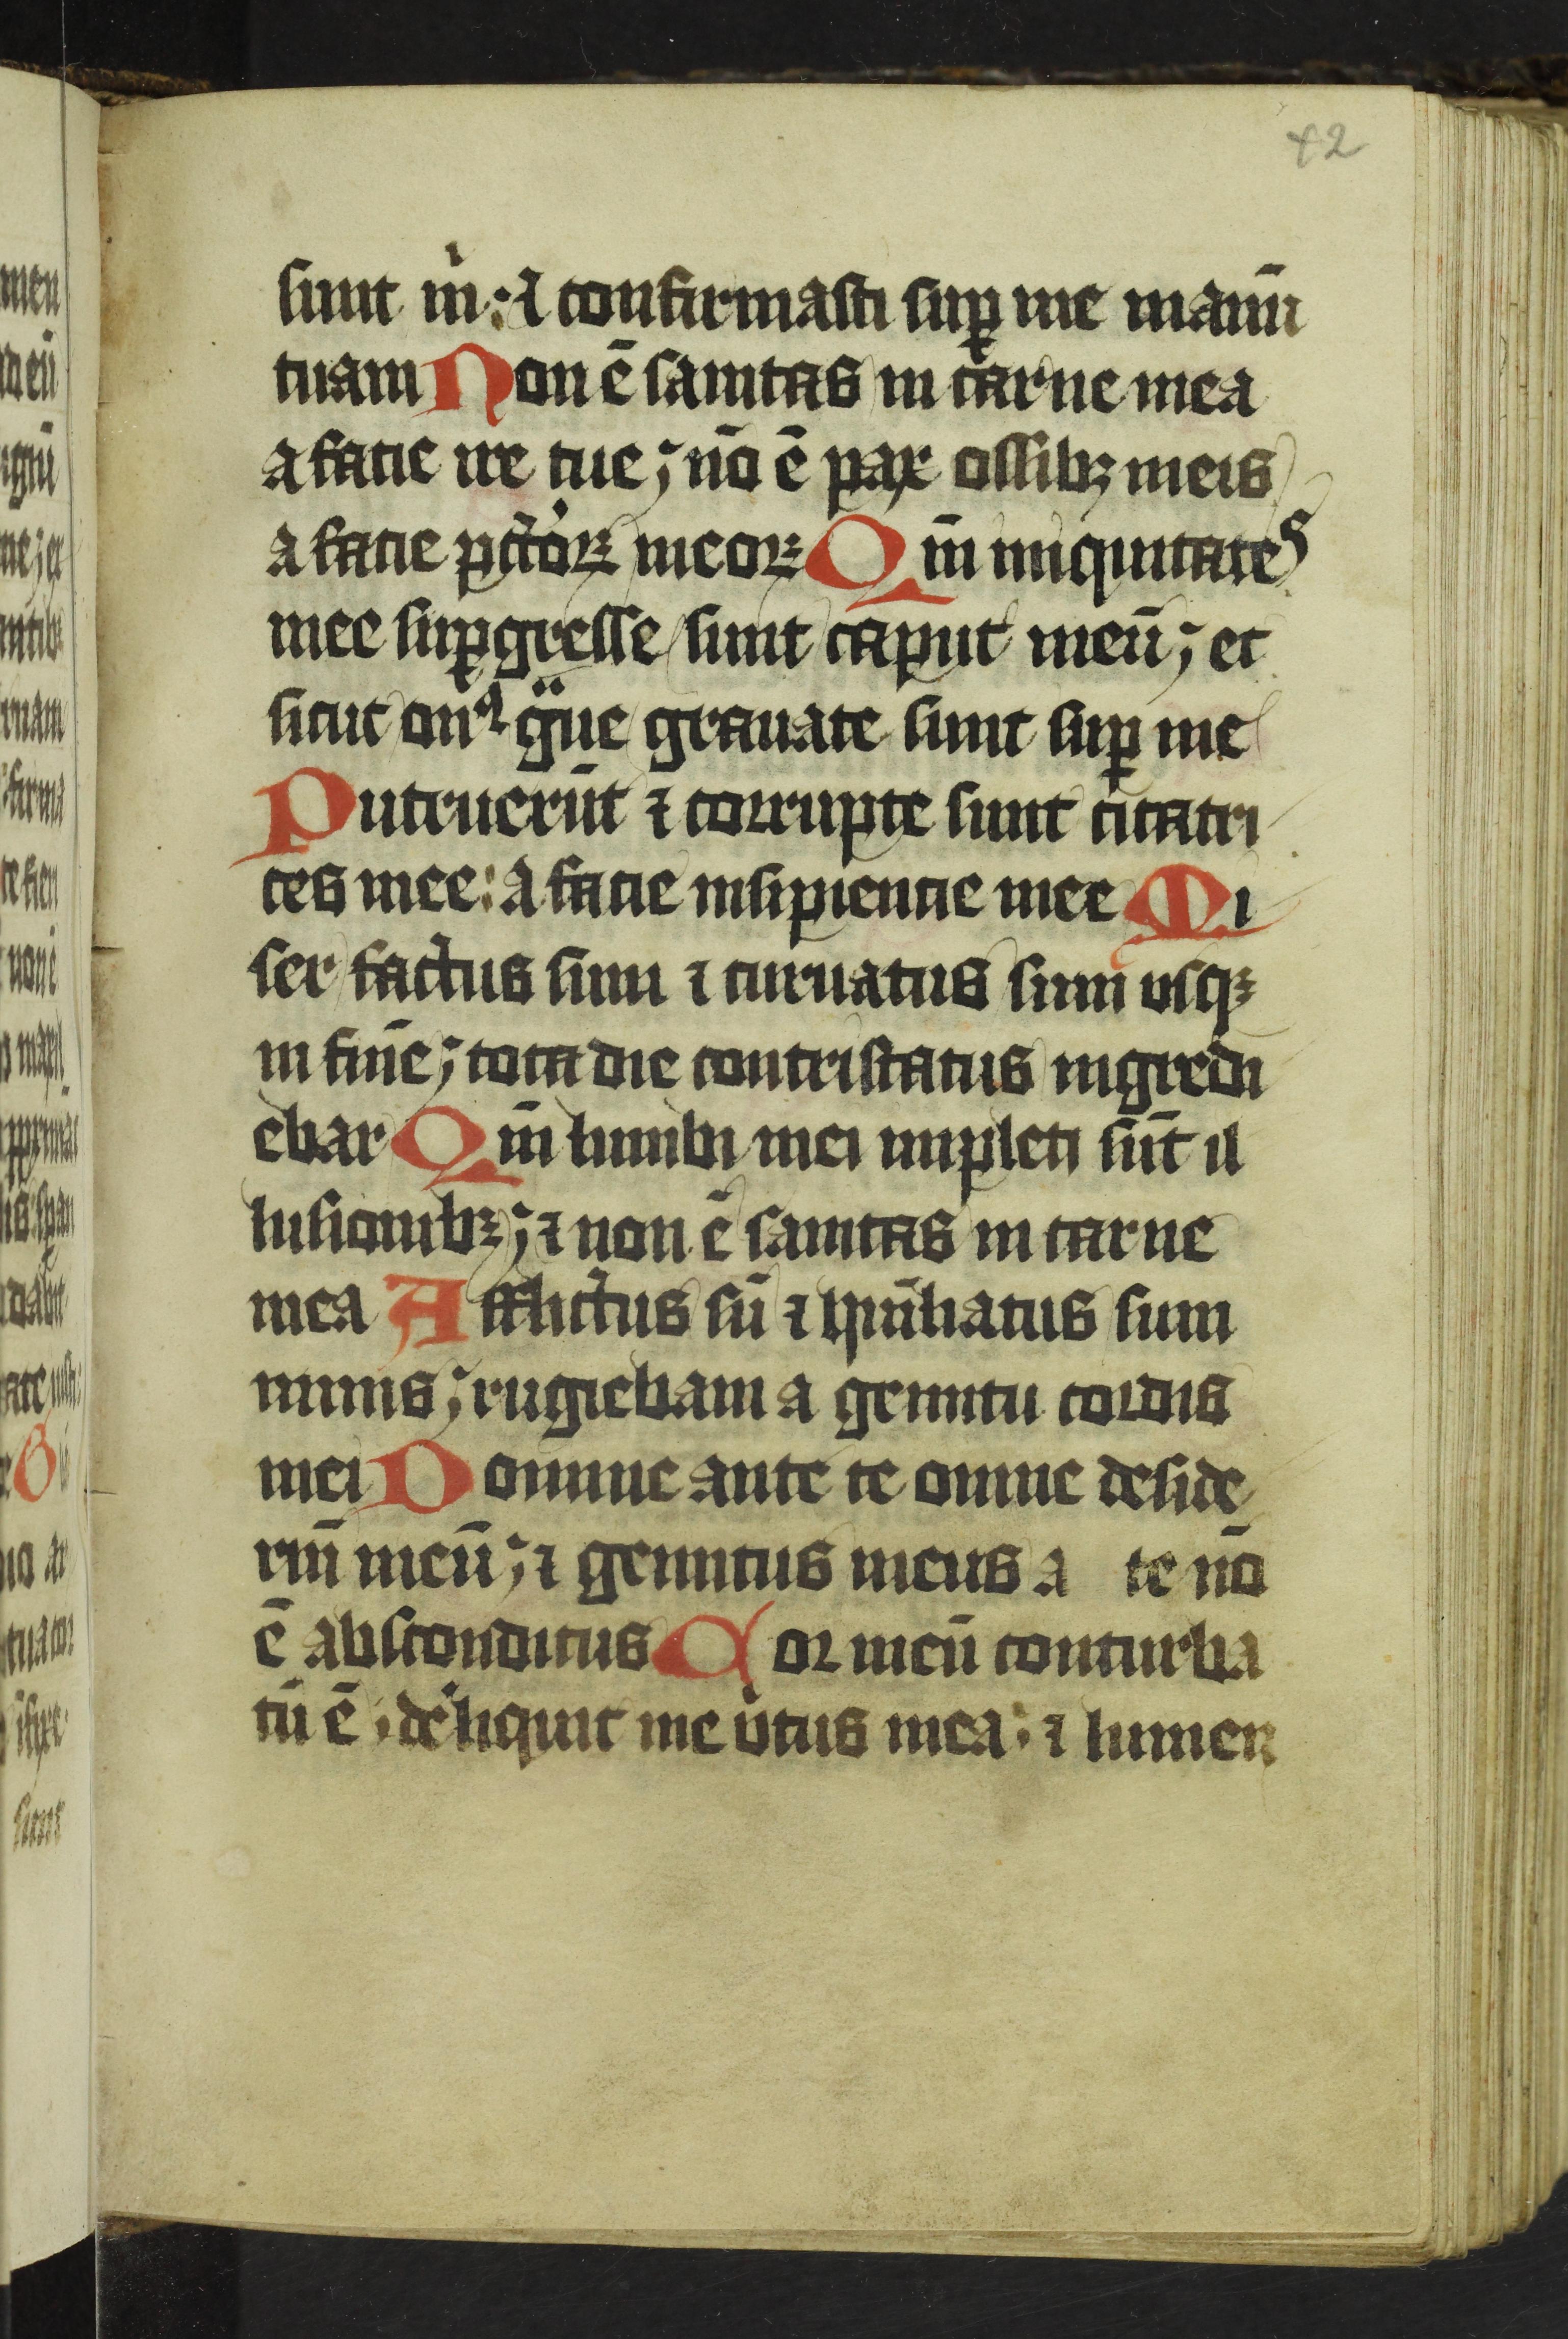 42
sunt m̉: ⁊ confirmasti suꝑ me manū
tuam Non ē sanitas in carne mea
a facie ire tue; nō ē pax ossibꝫ meis
a facie pctōꝝ meoꝝ Qm̄ iniquitates
mee suꝑgresse sunt caput meū; et
sicut onꝰ g̈ue grauate sunt suꝑ me
Putruerūt ⁊ corrupte sunt cicatri
ces mee: a facie insipientie mee Mi
ser factus sum ⁊ curuatus sum usqꝫ
in finē; tota die contristatus ingredi
ebar Qm̄ lumbi mei impleti sūt il
lusionibꝫ; ⁊ non ē sanitas in carne
mea Afflictus sū ⁊ humiliatus sum
nimis; rugiebam a gemitu cordis
mei Domine ante te omne deside
riū meū; ⁊ gemitus meus a te nō
ē absconditus Cor meū conturba
tū ē dereliquit me v̓tus mea: ⁊ lumen